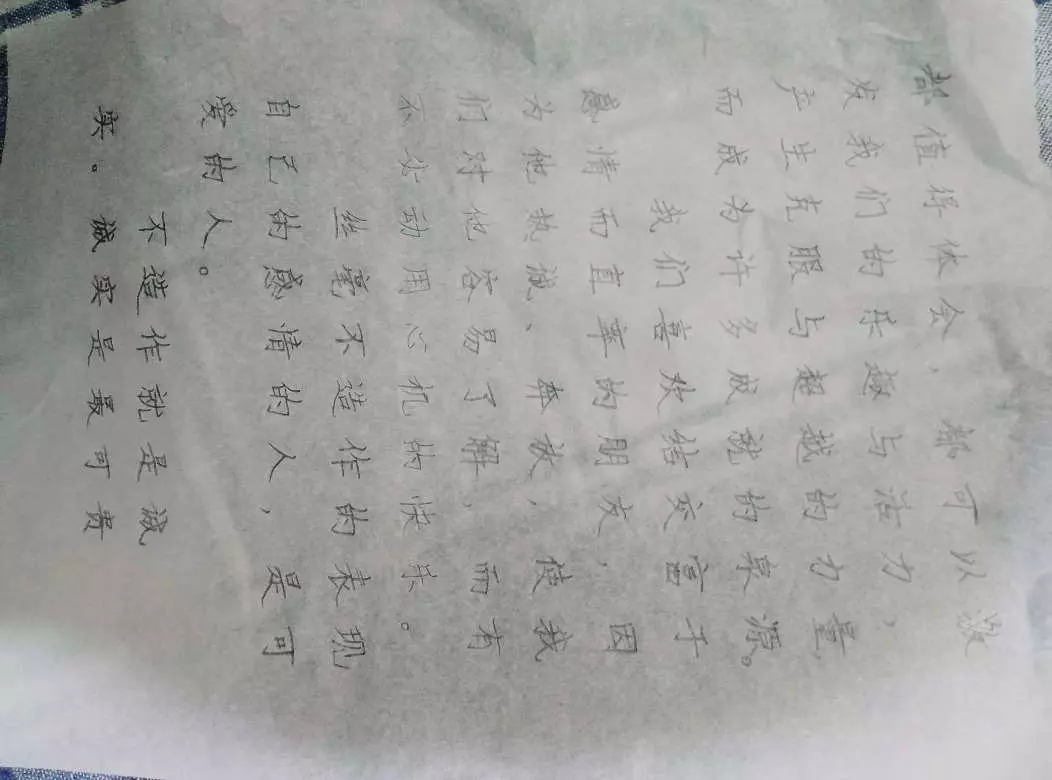 都值得体会,都可以激
发我们的乐趣与活力,
产生克服与超越的力量,
而成为许多成就的泉源。
我们喜欢结交富于
感情而直率的朋友,因
为他热诚、奔放,使我
们对他容易了解,而有
不必动用心机的快乐。
丝毫不造作的表现
自己的感情的人,是可
爱的人。
不造作就是诚
实。诚实是最可贵